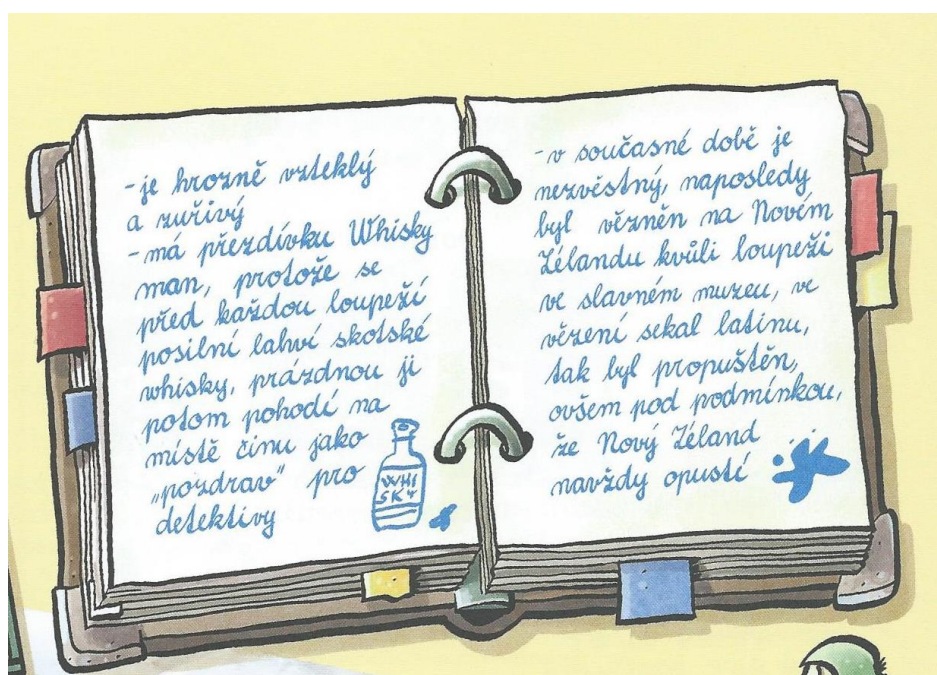 -je hrozně vzteklý
a zuřivý
-má přezdívku Whisky
man, protože se
před každou loupeží
posilní lahví skotské
whisky, prázdnou ji
potom pohodí na
místě činu jako
„pozdrav" pro
detektivy
WHI
SKY
-v současné době je
nezvěstný, naposledy
byl vězněn na Novém
Zélandu kvůli loupeži
ve slavném muzeu, ve
vězení sekal latinu,
tak byl propuštěn,
ovšem pod podmínkou,
že Nový Zéland
navždy opustí